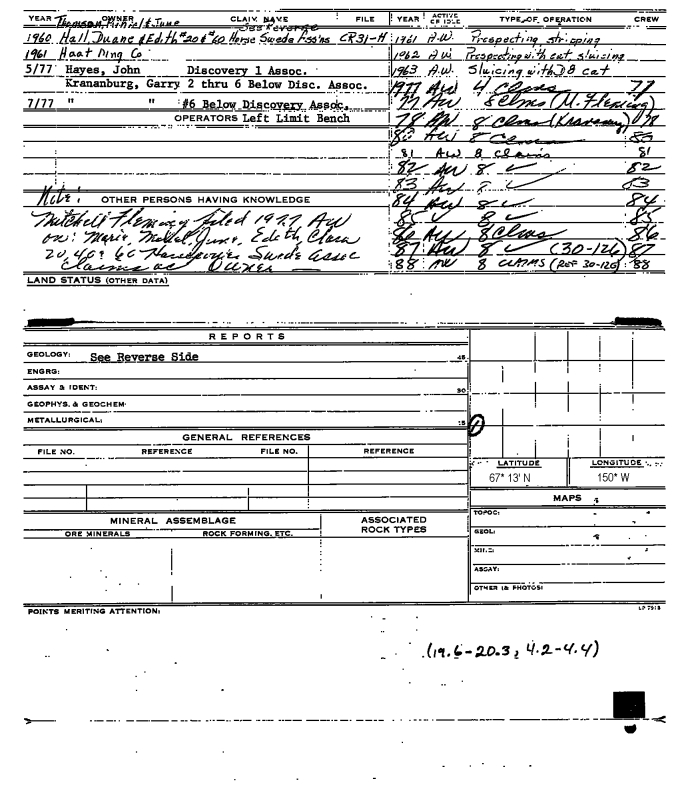 YEAR OWNER CLAIM NAME FILE YEAR ACTIVE OR IDLE TYPE OF OPERATION CREW
Thomson, & June See Reverse
1960 Hall, Duane & Edith #20 & #60 Horse Swede Ass'ns CR31-H 1961 A.W. Prospecting stripping
1961 Haat Ming Co 1962 A.W. Prospecting with cat, sluicing
5/77 Hayes, John Discovery 1 Assoc. 1963 A.W. Sluicing with D8 cat
Krananburg, Garry 2 thru 6 Below Disc. Assoc. 1977 AW 4 Clms 77
7/77 " " #6 Below Discovery Assoc. 77 AW 8 clms (M. Fleming)
OPERATORS Left Limit Bench 78 AW 8 Clms 78
80 AW 8 Clms 80
81 AW 8 claims 81
82 AW 8 ✓ 82
83 AW 8 ✓ 83
Note: OTHER PERSONS HAVING KNOWLEDGE 84 AW 8 ✓ 84
Mitchell Fleming filed 1977 AW 85 ✓ 8 ✓ 85
on: Marie, June, Edith, Clara 86 AW 8 Clms 86
20, 40 & 60 Swede Assoc 87 AW 8 ✓ (30-126) 87
Claims as Owner 88 AW 8 CLAIMS (REF 30-126) 88
LAND STATUS (OTHER DATA)
REPORTS
GEOLOGY: See Reverse Side 45
ENGRG:
ASSAY & IDENT: 30
GEOPHYS. & GEOCHEM:
METALLURGICAL: 15 1
GENERAL REFERENCES
FILE NO. REFERENCE FILE NO. REFERENCE
LATITUDE LONGITUDE
67° 13' N 150° W
MAPS
MINERAL ASSEMBLAGE ASSOCIATED ROCK TYPES TOPOG:
ORE MINERALS ROCK FORMING, ETC. GEOL:
MILE:
ASSAY:
OTHER (& PHOTOS)
POINTS MERITING ATTENTION: LP 7918
(19.6-20.3; 4.2-4.4)